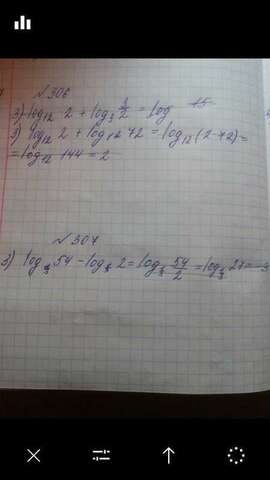 №306
3) log₁₂ 2 + log₃ 3/2 = log 15
3) log₁₂ 2 + log₁₂ 72 = log₁₂ (2·72) =
= log₁₂ 144 = 2
№307
3) log₃ 54 - log₃ 2 = log₃ 54/2 = log₃ 27 = 3